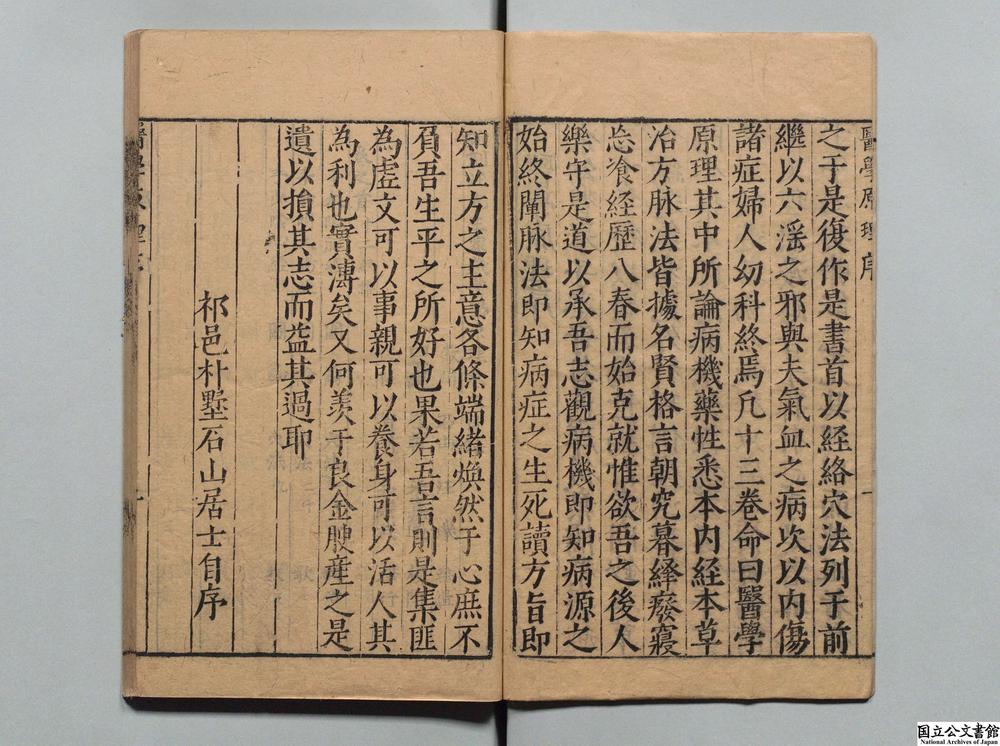 醫學原理序
之于是復作是書首以経絡穴法列于前
繼以六滛之邪與夫氣血之病次以内傷
諸症婦人幼科終焉凡十三卷命曰醫學
原理其中所論病機藥性悉本内経本草
治方脉法皆據名賢格言朝究暮繹癈寢
忘飡経歷八春而始克就惟欲吾之後人
樂守是道以承吾志觀病機即知病源之
始終闡脉法即知病症之生死讀方旨即
知立方之主意各條端緒煥然于心庶不
負吾生平之所好也果若吾言則是集匪
為虗文可以事親可以養身可以活人其
為利也實溥矣又何羨于良金腴産之是
遺以損其志而益其過耶
祁邑朴墅石山居士自序
国立公文書館
National Archives of Japan